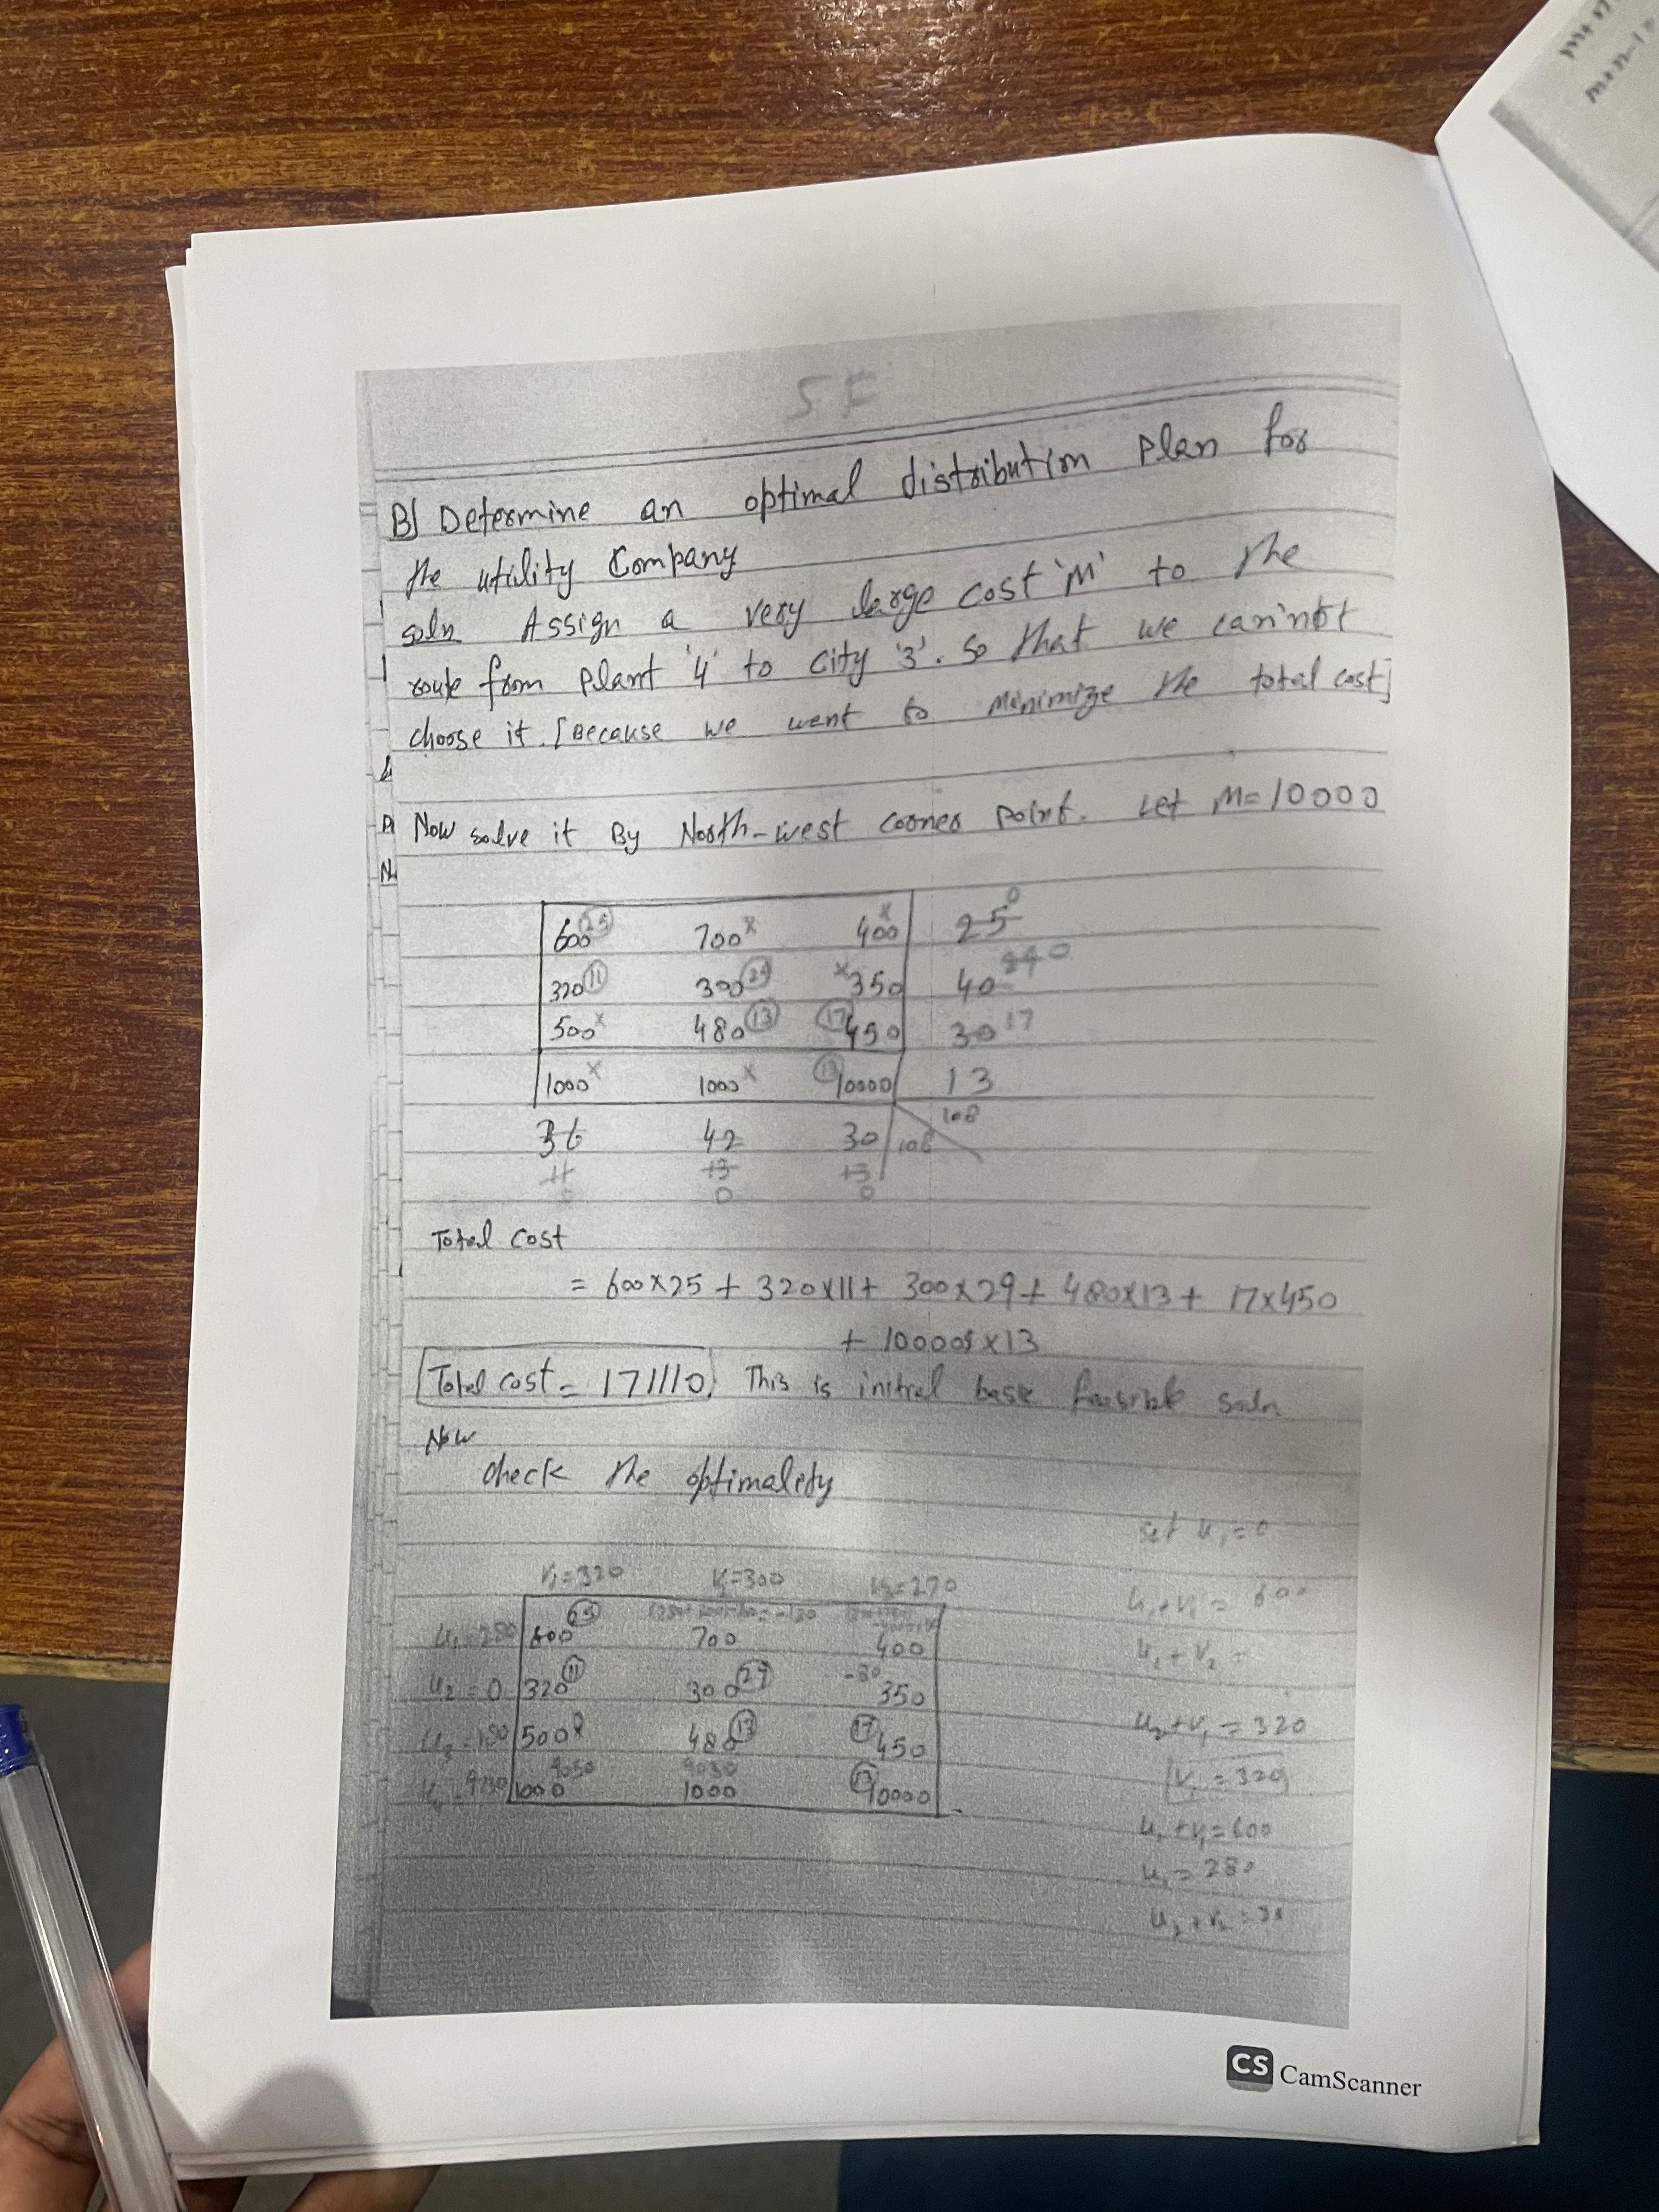 5F
B) Determine an optimal distribution plan for
the utility Company
soln Assign a very large cost 'M' to the
route from plant '4' to city '3'. so that we can'not
choose it. [Because we went to Minimize the total cost]
Now solve it By North-west corner point. Let M=10000
600 25 700 x 400 x 25 0
320 11 300 29 x 350 40 29 0
500 x 480 13 17 450 30 17
1000 x 1000 x 13 10000 13
36 42 30 108 108
11 13 13
0 0 0
Total cost
= 600x25 + 320x11+ 300x29+ 480x13+ 17x450
+ 10000x13
Total cost = 171110. This is initial basic feasible soln
Now
check the optimality
set u1=0
V1=320 V2=300 V3=270
u1+v1 = 600
u1=280 600 25 700 400
u1+v2 =
u2=0 320 11 300 29 -80 350
u2+v1 = 320
u3=180 500 x 480 13 17 450
v1 = 320
9050 9030
1000 1000 13 10000
u1+v1=600
u1=280
CS CamScanner